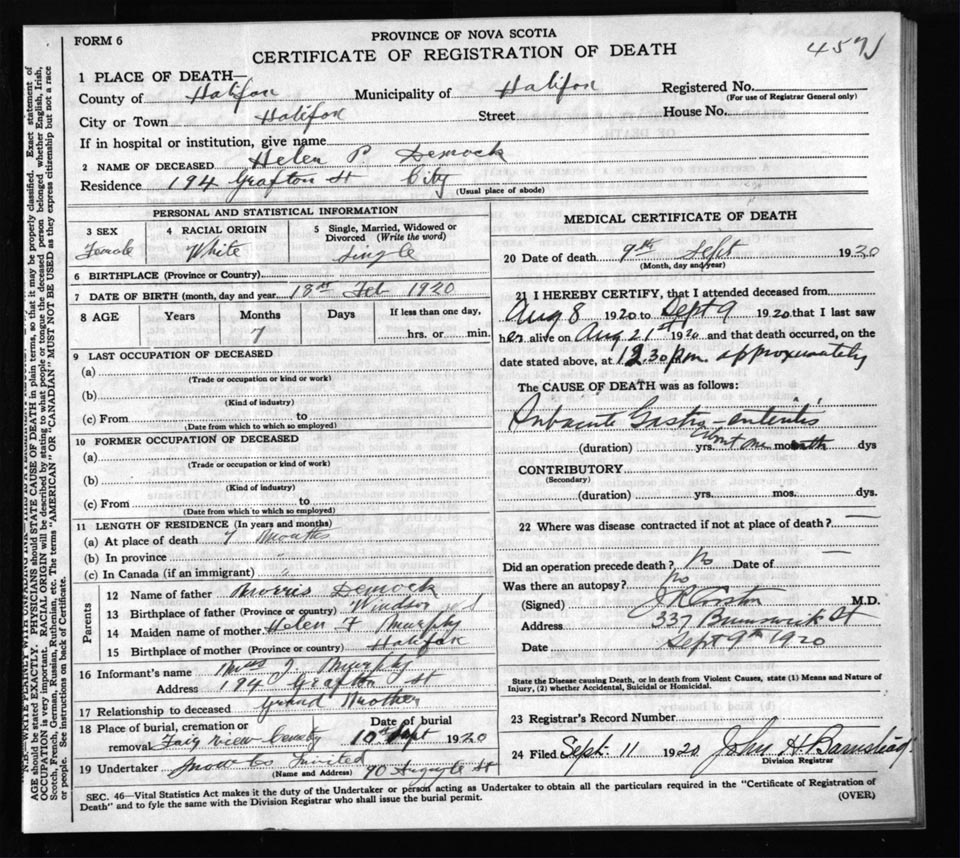 FORM 6
PROVINCE OF NOVA SCOTIA
4571
CERTIFICATE OF REGISTRATION OF DEATH
1 PLACE OF DEATH—
County of Halifax Municipality of Halifax Registered No.
(For use of Registrar General only)
City or Town Halifax Street House No.
If in hospital or institution, give name
2 NAME OF DECEASED Helen P Demock
Residence 194 Grafton St City
(Usual place of abode)
PERSONAL AND STATISTICAL INFORMATION
3 SEX 4 RACIAL ORIGIN 5 Single, Married, Widowed or Divorced (Write the word)
Female White Single
6 BIRTHPLACE (Province or Country)
7 DATE OF BIRTH (month, day and year 18th Feb 1920
8 AGE Years Months Days If less than one day,
7 hrs. or min.
9 LAST OCCUPATION OF DECEASED
(a)
(Trade or occupation or kind or work)
(b)
(Kind of industry)
(c) From to
(Date from which to which so employed)
10 FORMER OCCUPATION OF DECEASED
(a)
(Trade or occupation or kind of work)
(b)
(Kind of industry)
(c) From to
(Date from which to which so employed)
11 LENGTH OF RESIDENCE (In years and months)
(a) At place of death 7 months
(b) In province "
(c) In Canada (if an immigrant) "
Parents
12 Name of father Morris Demock
13 Birthplace of father (Province or country) Windsor N S
14 Maiden name of mother Helen F Murphy
15 Birthplace of mother (Province or country) Halifax
16 Informant's name Mrs J. Murphy
Address 194 Grafton St
17 Relationship to deceased Grand Mother
18 Place of burial, cremation or removal Fairview Date of burial 10th Sept 1920
19 Undertaker Snow & Co Limited 90 Argyle St
(Name and Address)
MEDICAL CERTIFICATE OF DEATH
20 Date of death 9th Sept 1920
(Month, day and year)
21 I HEREBY CERTIFY, that I attended deceased from
Aug 8 1920 to Sept 9 1920 that I last saw
her alive on Aug 21st 1920 and that death occurred, on the
date stated above, at 12.30 p.m. approximately
The CAUSE OF DEATH was as follows:
Subacute Gastro-enteritis
(duration) yrs. about one month dys
CONTRIBUTORY
(Secondary)
(duration) yrs. mos. dys.
22 Where was disease contracted if not at place of death? —
Did an operation precede death? No Date of —
Was there an autopsy? No
(Signed) M.D.
Address 337 Brunswick St
Date Sept 9th 1920
State the Disease causing Death, or in death from Violent Causes, state (1) Means and Nature of
Injury, (2) whether Accidental, Suicidal or Homicidal.
23 Registrar's Record Number
24 Filed Sept 11 1920 John H. Barnstead
Division Registrar
SEC. 46—Vital Statistics Act makes it the duty of the Undertaker or person acting as Undertaker to obtain all the particulars required in the "Certificate of Registration of
Death" and to fyle the same with the Division Registrar who shall issue the burial permit.
(OVER)
AGE should be stated EXACTLY. PHYSICIANS should STATE CAUSE OF DEATH in plain terms, so that it may be properly classified. Exact statement of
OCCUPATION is very important. RACIAL ORIGIN will be described by stating to what people or tongue the deceased person belonged whether English, Irish,
Scotch, French, German, Russian, Ruthenian, etc. The terms "AMERICAN" OR "CANADIAN" MUST NOT BE USED as they express citizenship but not a race
or people. See instructions on back of Certificate.